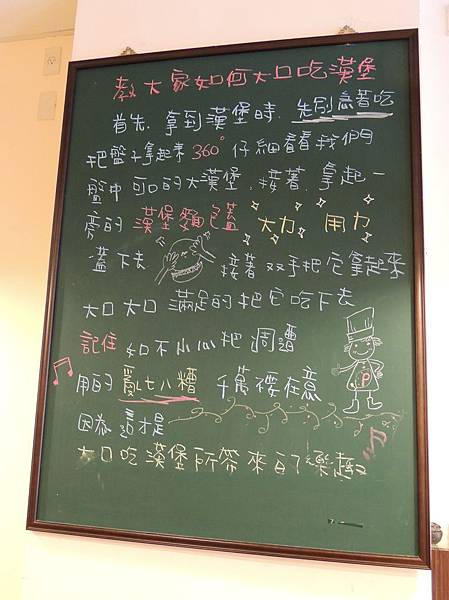 教大家如何大口吃漢堡
首先. 拿到漢堡時. 先別急著吃
把盤子拿起來 360° 仔細看看我們
盤中可口的大漢堡. 接著. 拿起一
旁的 漢堡麵包蓋 大力 用力
蓋下去 接著 双手把它拿起來
大口大口 滿足的把它吃下去
記住 如不小心把 周遭
用的 亂七八糟 千萬不要在意
因為 這才是
大口吃漢堡所帶來的樂趣
P